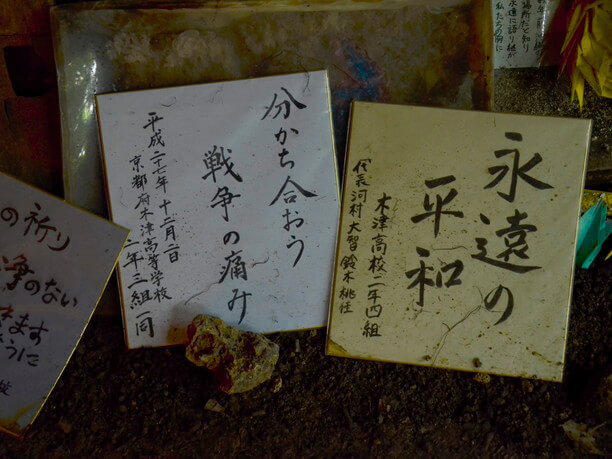 永遠の
平和
木津高校二年四組
代表河村大智鈴木桃佳
分かち合おう
戦争の痛み
平成二十七年十二月二日
京都府木津高等学校
二年三組一同
の祈り
争のない
きます
うに
校
場所だと知り
永遠に語り継が
私たちの胸に